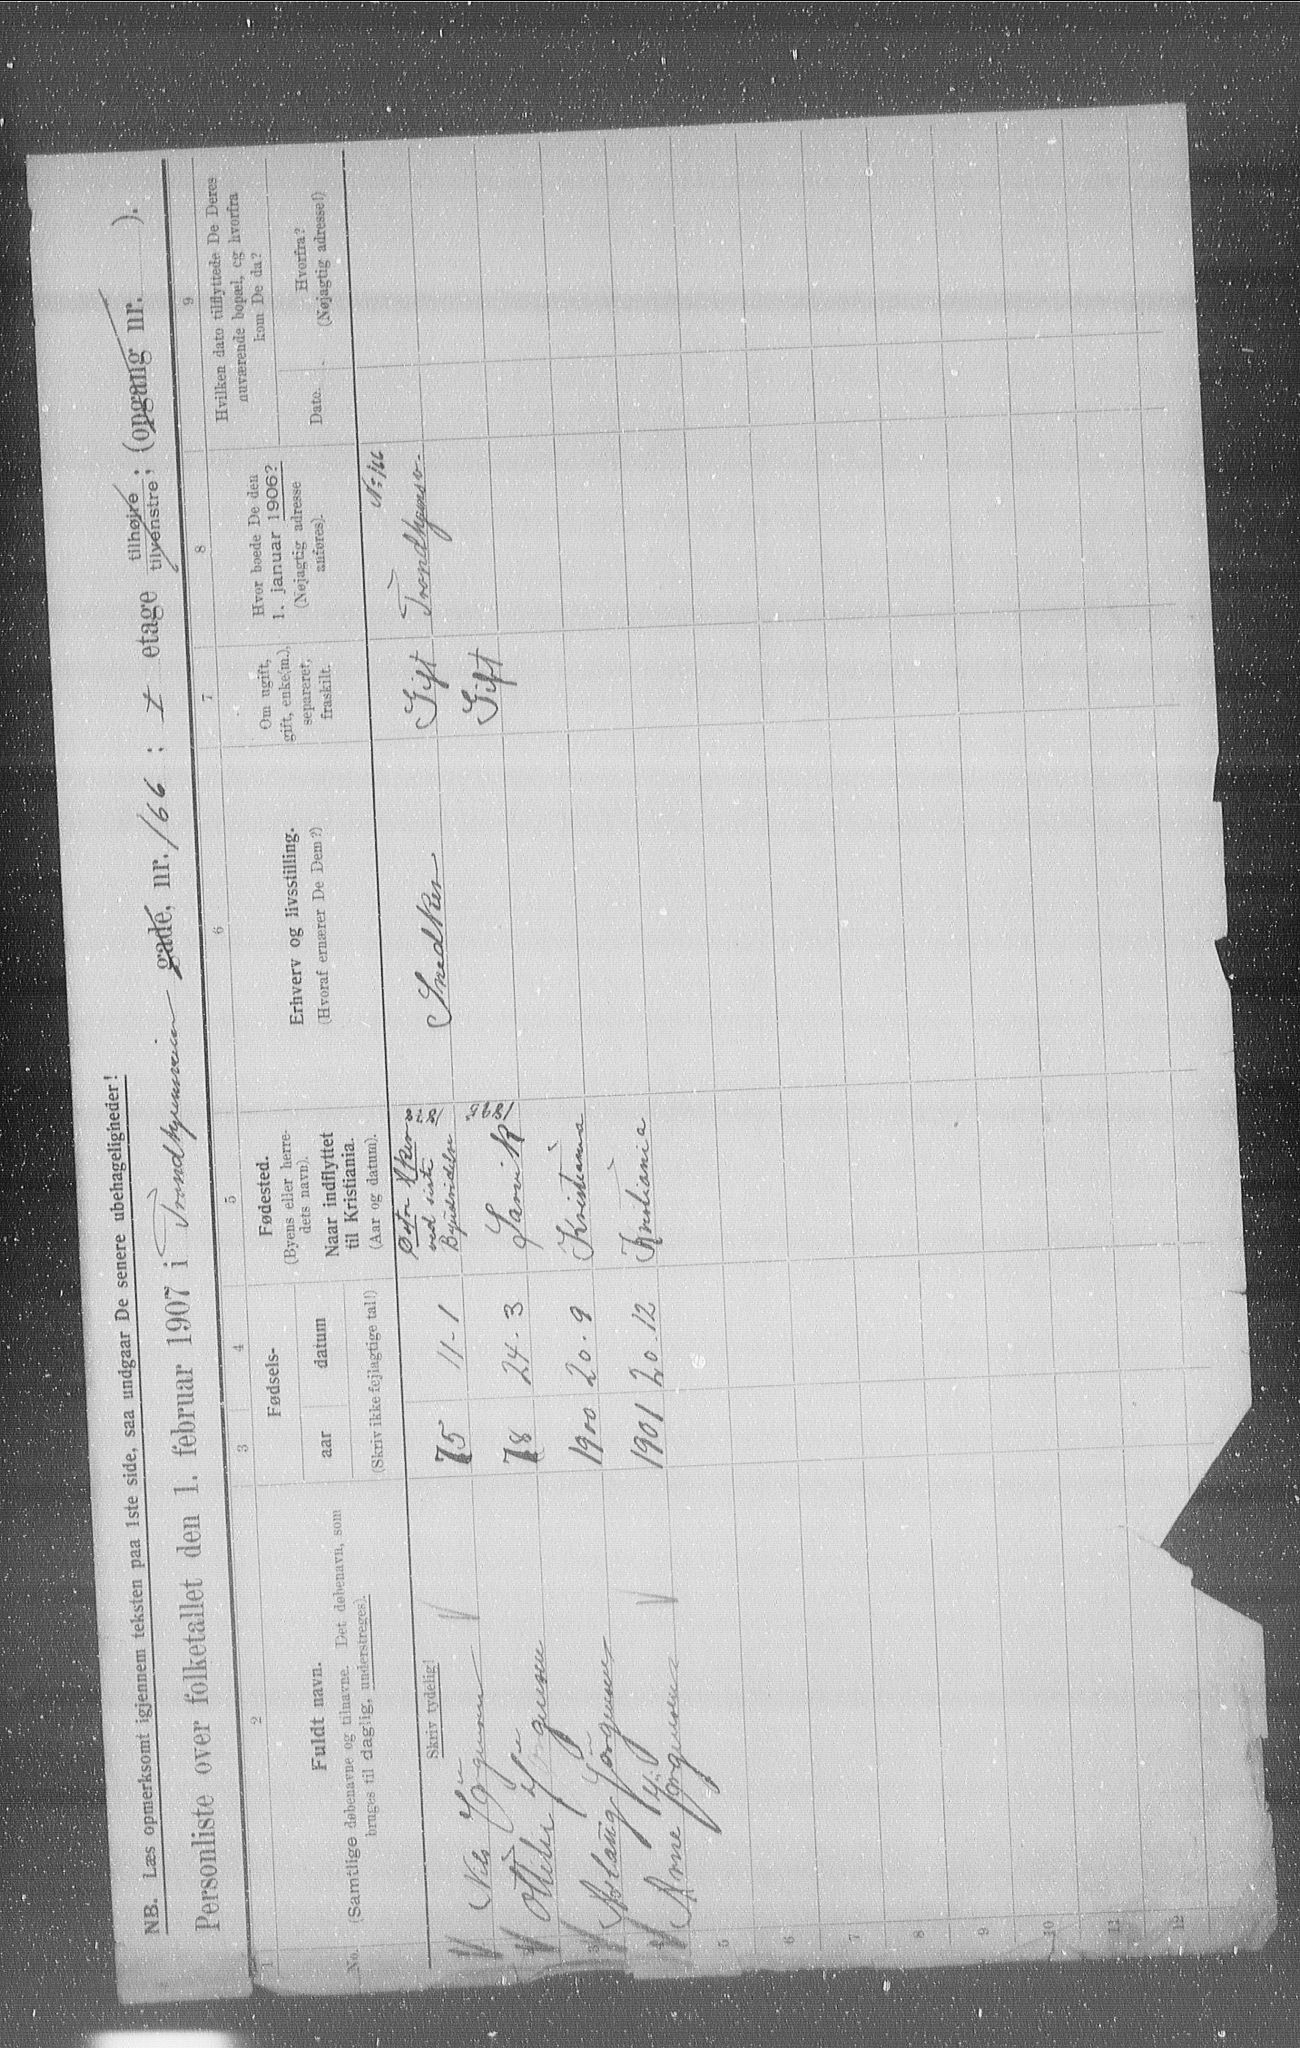 NB. Læs opmerksomt igjennem teksten paa 1ste side, saa undgaar De senere ubehageligheder!
Personliste over folketallet den 1. februar 1907 i Trondhjemsveien gade, nr. 166 : 1 etage tilhøjre ; (opgang nr. ).
tilvenstre;
1 2 3 4 5 6 7 8 9
No.
Fuldt navn.
(Samtlige døbenavne og tilnavne. Det døbenavn, som
bruges til daglig, understreges).
Fødsels-
aar datum
(Skriv ikke fejlagtige tal!)
Fødested.
(Byens eller herre-
dets navn).
Naar indflyttet
til Kristiania.
(Aar og datum).
Erhverv og livsstilling.
(Hvoraf ernærer De Dem?)
Om ugift,
gift, enke(m.),
separeret,
fraskilt.
Hvor boede De den
1. januar 1906?
(Nøjagtig adresse
anføres).
Hvilken dato tilflyttede De Deres
nuværende bopæl, og hvorfra
kom De da?
Date.
Hvorfra?
(Nøjagtig adresse!)
Skriv tydelig!
Nils Jørgensen 75 11-1 Østre Aker 1878 ved siste Byudvidelse Snedker Gift Trondhjemsv. No 166
2 Jørgensen 78 24.3 Larvik 1895 Gift
3 Aslaug Jørgensen 1900 20.9 Kristiania
4 Arne Jørgensen 1901 20.12 Kristiania
5
6
7
8
9
10
11
12